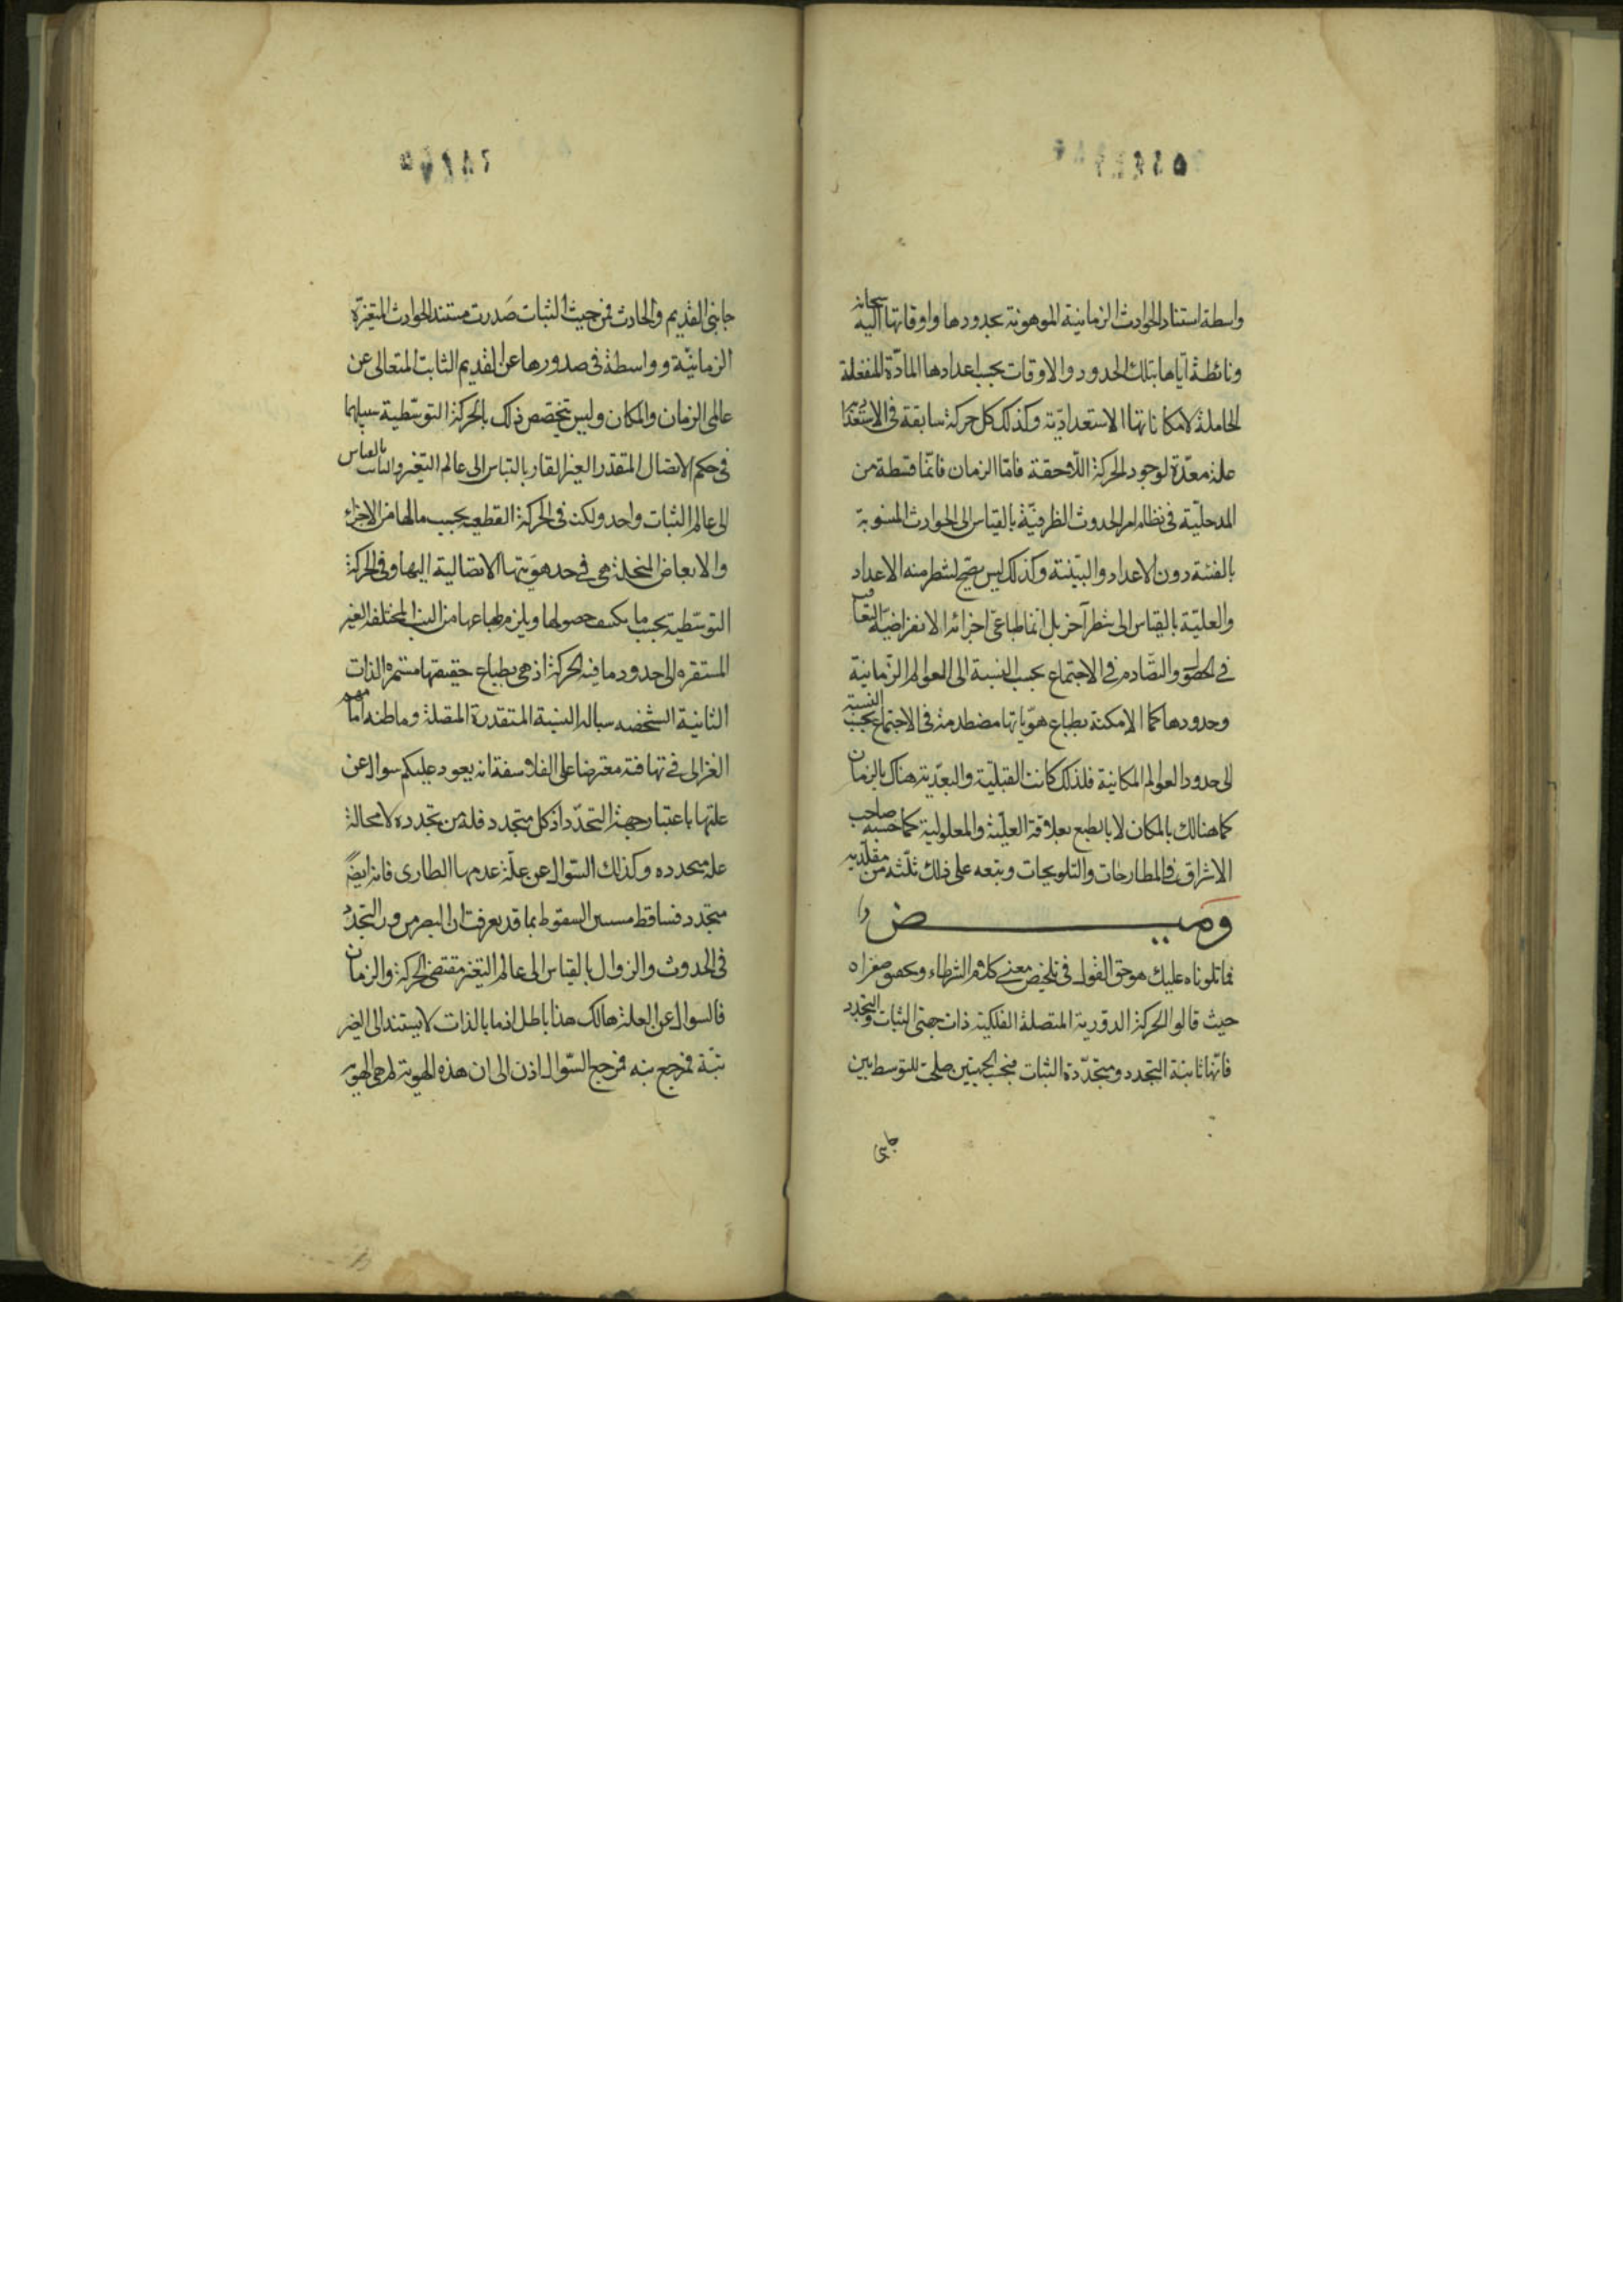 واسطة استناد الحوادث الزمانية الموهونة بحدودها واوقاتها اليه سبحانه
ونائطة اياها بتلك الحدود والاوقات بحسب اعدادها المادة المنفعلة
الحاملة لامكاناتها الاستعدادية وكذلك كل حركة سابقة فى الاستعداد
علة معدة لوجود الحركة اللاحقة فاما الزمان فانما قسطه من
المدخلية فى نظام امر الحدوث الظرفية بالقياس الى الحوادث المنسوبة
بالفيئة دون الاعداد والبينة وكذلك ليس يصح لشطر منه الاعداد
والعلية بالقياس الى شطر آخر بل انما طباعى اجزائه الانفراضية التعاقب
فى الحصول والتصادم فى الاجتماع بحسب النسبة الى العوالم الزمانية
وحدودها كما الامكنة بطباع هوياتها مصطدمة فى الاجتماع بحسب النسبة
الى حدود العوالم المكانية فلذلك كانت القبلية والبعدية هناك بالزمان
كما هنالك بالمكان لا بالطبع بعلاقة العلية والمعلولية كما حسبه صاحب
الاشراق فى المطارحات والتلويحات وتبعه على ذلك ثلثة من مقلديه
وميض
فما تلوناه عليك هو حق القول فى تلخيص معنى كلام الشركاء
حيث قالوا الحركة الدورية المتصلة الفلكية ذات جهتى الثبات والتجدد
فانها ثابتة التجدد ومتجددة الثبات فبحسب الجهتين صلحت للتوسط بين
جانبى
جانبى القديم والحادث فمن حيث الثبات صدرت مستند الحوادث المتغيرة
الزمانية وواسطة فى صدورها عن القديم الثابت المتعالى عن
عالمى الزمان والمكان وليس يتخصص ذلك بالحركة التوسطية سبيلهما
فى حكم الاتصال المتقدر الغير القار بالقياس الى عالم التغير والثبات بالقياس
الى عالم الثبات واحد ولكن فى الحركة القطعية بحسب مالها من الاجزاء
والابعاض المنحلة هى فى حد هويتها الاتصالية اليها وفى الحركة
التوسطية بحسب ما يكتنف حصولها ويلزم طباعها من النسب المختلفة الغير
المستقرة الى حدود ما فيه الحركة اذ هى بطباع حقيقتها مستمرة الذات
الثابتة الشخصية سيالة النسبة المتقدرة المتصلة وما ظنه امامهم
الغزالى فى تهافته معترضا على الفلاسفة انه يعود عليكم سوال عن
علتها باعتبار جهة التجدد اذ كل متجدد فله من تجدده لا محالة
علة متجددة وكذلك السوال عن علة عدمها الطارى فانه ايضا
متجدد فساقط مستبين السقوط بما قد تعرفت ان التصرم والتجدد
فى الحدوث والزوال بالقياس الى عالم التغير مقتضى الحركة والزمان
فالسوال عن العلة هنالك هذا باطل اذ ما بالذات لا يستند الى الغير
بتة فمرجع السوال اذن الى ان هذه الهوية لم هى الهوية